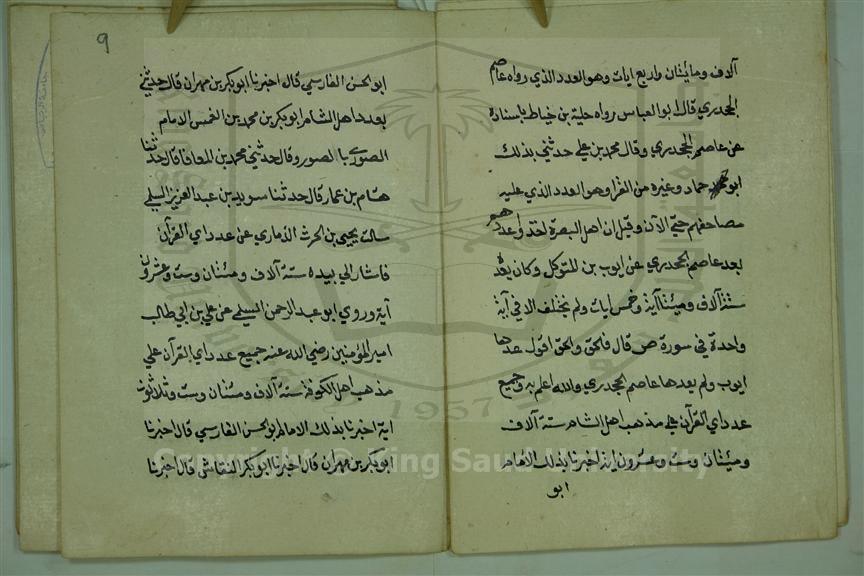 آلاف ومايئتان واربع ايات وهو العدد الذي رواه عاصم
الجحدري قال ابو العباس رواه حلية بن خياط باسناده
عن عاصم الجحدري وقال محمد بن علي حدثني بذلك
ابو حماد وغيره من القرا وهو العدد الذي عليه
مصاحفهم حتى الآن وقيل ان اهل البصرة اخذوا عددهم
بعد عاصم الجحدري عن ايوب بن المتوكل وكان يعد
ستة آلاف وميئتا آية وخمس ايات ولم يختلف الا في آية
واحدة في سورة ص قال فالحق والحق اقول عدها
ايوب ولم يعدها عاصم الجحدري والله اعلم به وجميع
عدد اي القرآن على مذهب اهل الشام ستة آلاف
وميئتان وست وعشرون اية اخبرنا بذلك الامام
ابو
9
ابو الحسن الفارسي قال اخبرنا ابو بكر بن مهران قال حدثني
بعدد اهل الشام ابو بكر بن محمد بن الامام
الصوري بالصور وقال حدثني محمد بن المعافا قال حدثنا
هشام بن عمار قال حدثنا سويد بن عبد العزيز السلمي
سالت يحيى بن الحرث الذماري عن عدد اي القرآن
فاشار الي بيده ستة آلاف وميئتان وست وعشرون
آية وروي ابو عبد الرحمن السلمي عن علي بن ابي طالب
امير المؤمنين رضي الله عنه جميع عدد اي القرآن علي
مذهب اهل الكوفة ستة آلاف وميئتان وست وثلاثون
اية اخبرنا بذلك الامام ابو الحسن الفارسي قال اخبرنا
ابو بكر بن مهران قال اخبرنا ابو بكر النقاش قال اخبرنا
1957
Copyright © King Saud University